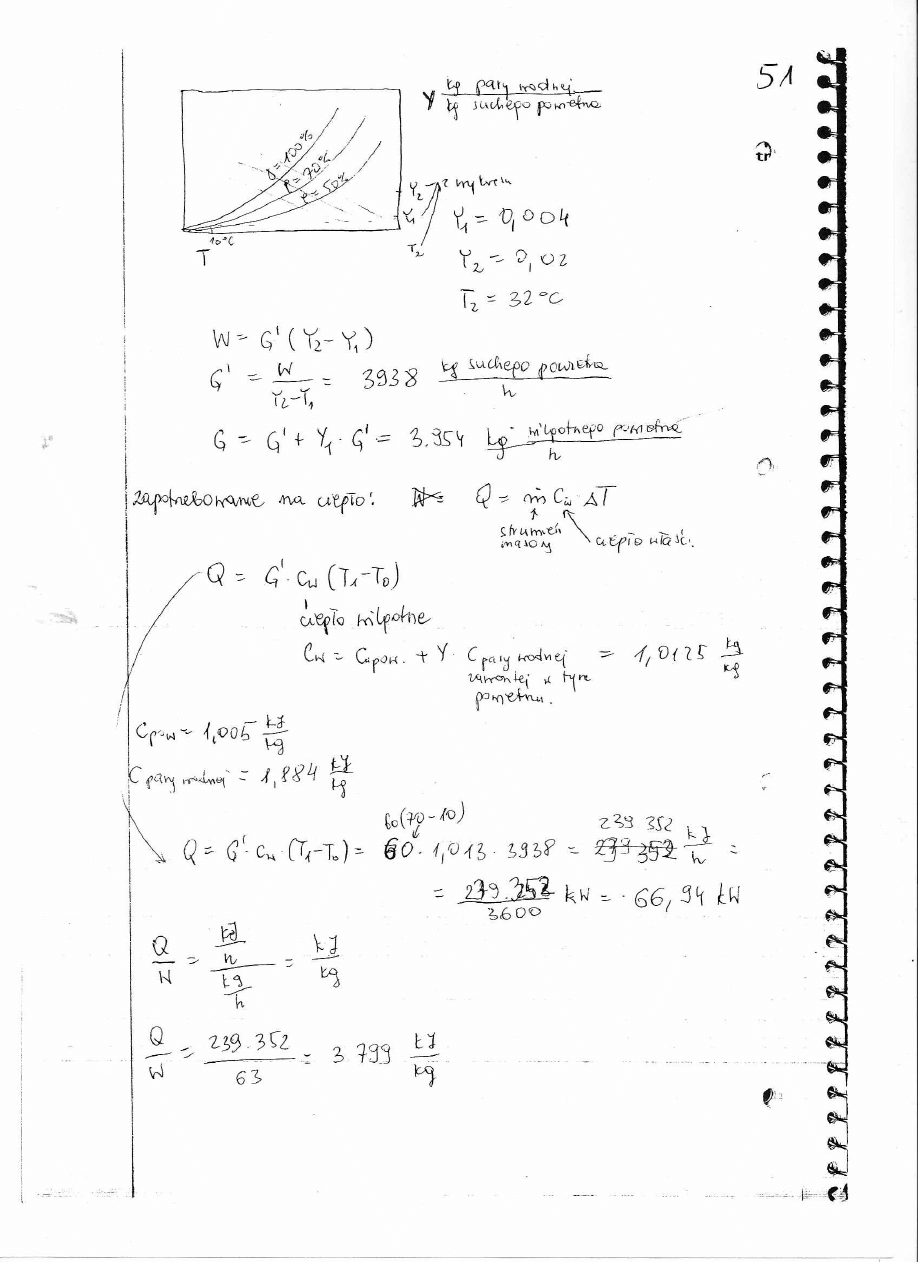 51
Y kg pary wodnej / kg suchego powietrza
φ=100%
φ=70%
φ=50%
10°C
T
Y₂ z wykresu
Y₁
T₂
Y₁ = 0,004
Y₂ = 0,02
T₂ = 32°C
W = G' (Y₂ - Y₁)
G' = W / Y₂-Y₁ = 3938 kg suchego powietrza / h
G = G' + Y₁ · G' = 3.954 kg wilgotnego powietrza / h
Zapotrzebowanie na ciepło: Q = ṁ Cw ΔT
strumień masowy
ciepło właść.
Q = G' · cw (T₁-T₀)
ciepło wilgotne
Cw = Cpow. + Y · Cpary wodnej = 1,0125 kg/kg
zawartej w tym
powietrzu.
Cpow = 1,005 kJ/kg
Cpary wodnej = 1,884 kJ/kg
60(70-10)
239 352
Q = G' · cw · (T₁-T₀) = 60 · 1,013 · 3938 = 239 352 kJ/h =
= 239.352 / 3600 kW = 66,94 kW
Q/W = kJ/h / kg/h = kJ/kg
Q/W = 239.352 / 63 = 3 799 kJ/kg